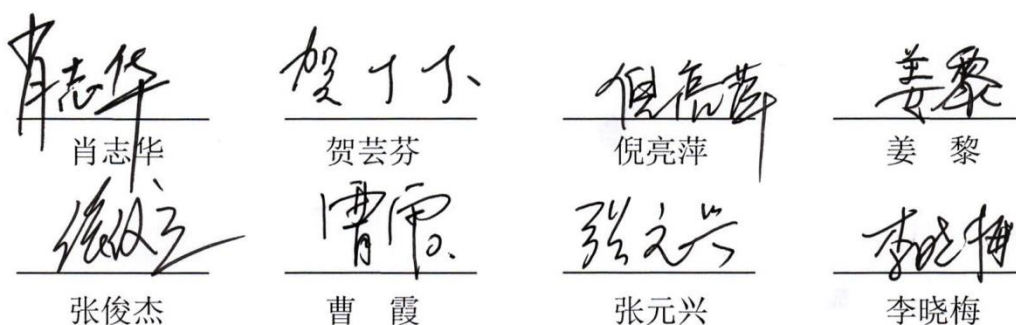 肖志华 贺 倪亮萍 姜黎
肖志华 贺芸芬 倪亮萍 姜 黎
曹霞 张元兴 李晓梅
张俊杰 曹 霞 张元兴 李晓梅